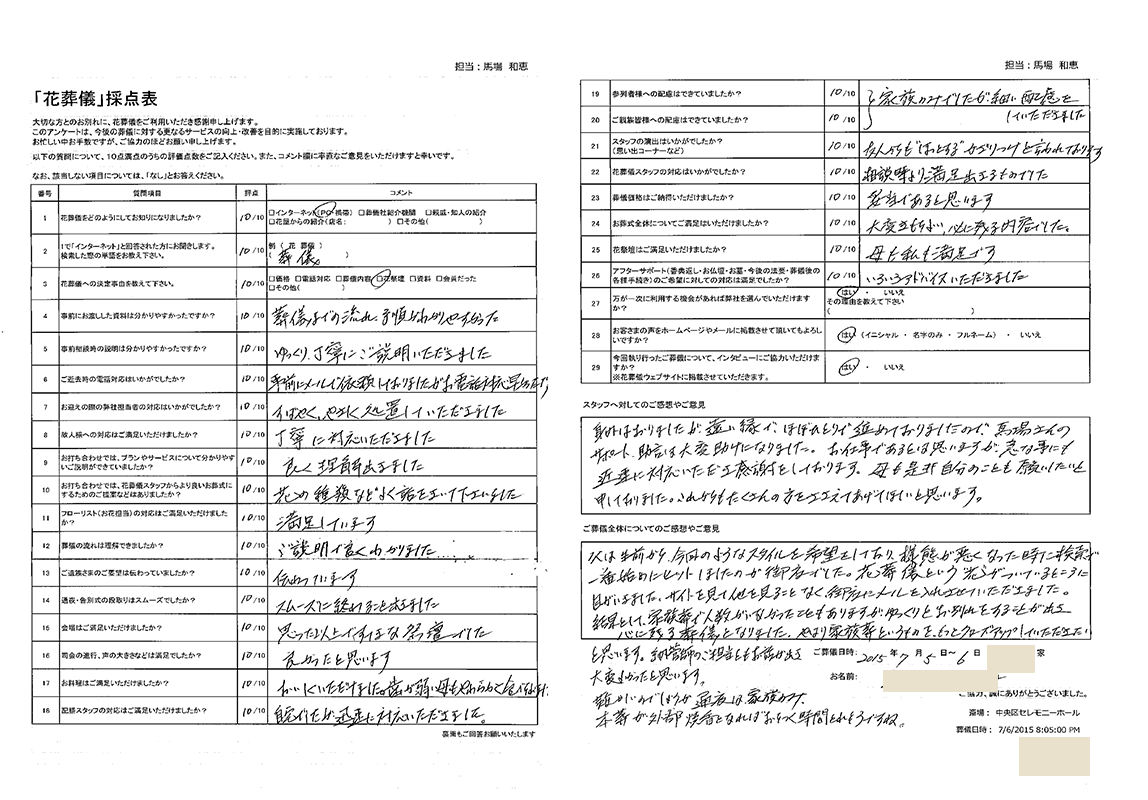 担当：馬場 和恵
「花葬儀」採点表
大切な方とのお別れに、花葬儀をご利用いただき感謝申し上げます。
このアンケートは、今後の葬儀に対する更なるサービスの向上・改善を目的に実施しております。
お忙しい中お手数ですが、ご協力のほどお願い申し上げます。
以下の質問について、10点満点のうちの評価点数をご記入ください。また、コメント欄に率直なご意見をいただけますと幸いです。
なお、該当しない項目については、「なし」とお答えください。
番号 質問項目 評点 コメント
1 花葬儀をどのようにしてお知りになりましたか？ 10/10 □インターネット(PC・携帯) □葬儀社紹介機関 □親戚・知人の紹介
□花屋からの紹介(店名： ) □その他( )
2 1で「インターネット」と回答された方にお聞きします。
検索した際の単語をお教え下さい。 10/10 例（ 花 葬儀 ）
（ 葬儀 ）
3 花葬儀への決定事由を教えて下さい。 10/10 □価格 □電話対応 □葬儀内容 □花祭壇 □資料 □会員だった
□その他( )
4 事前にお渡しした資料は分かりやすかったですか？ 10/10 葬儀までの流れ、手順がわかりやすかった
5 事前相談時の説明は分かりやすかったですか？ 10/10 ゆっくり、丁寧にご説明いただきました
6 ご逝去時の電話対応はいかがでしたか？ 10/10 事前にメールで依頼しておりましたがお電話対応
7 お迎えの際の弊社担当者の対応はいかがでしたか？ 10/10 すばやく、やさしく処置していただきました
8 故人様への対応はご満足いただけましたか？ 10/10 丁寧に対応いただきました
9 お打ち合わせでは、プランやサービスについて分かりやすいご説明ができていましたか？ 10/10 良く理解出来ました
10 お打ち合わせでは、花葬儀スタッフからより良いお葬式にするためのご提案などはありましたか？ 10/10 花の種類などよく話をさいて下さいました
11 フローリスト(お花担当)の対応はご満足いただけましたか？ 10/10 満足しています
12 葬儀の流れは理解できましたか？ 10/10 ご説明で良くわかりました
13 ご遺族さまのご要望は伝わっていましたか？ 10/10 伝わっています
14 通夜・告別式の段取りはスムーズでしたか？ 10/10 スムーズに終めること出来ました
15 会場はご満足いただけましたか？ 10/10 思った以上にすてきな会場でした
16 司会の進行、声の大きさなどは満足でしたか？ 10/10 良かったと思います
17 お料理はご満足いただけましたか？ 10/10 おいしくいただけました。歯が弱い母もやわらかく食べ
18 配膳スタッフの対応はご満足いただけましたか？ 10/10 迅速に対応いただきました。
裏面もご回答お願いいたします
担当：馬場 和恵
19 参列者様への配慮はできていましたか？ 10/10 家族のみでしたが細い配慮を
20 ご親族皆様への配慮はできていましたか？ 10/10 していただきました
21 スタッフの演出はいかがでしたか？
(思い出コーナーなど) 10/10 友人からも"ほっとする"かざりつけと言われております
22 花葬儀スタッフの対応はいかがでしたか？ 10/10 相談時より満足出来るものでした
23 葬儀価格はご納得いただけましたか？ 10/10 妥当であると思います
24 お葬式全体についてご満足はいただけましたか？ 10/10 大変すばらしい、心に残る内容でした。
25 花祭壇はご満足いただけましたか？ 10/10 母も私も満足です
26 アフターサポート(香典返し・お仏壇・お墓・今後の法要・葬儀後の各種手続き)のご希望に対しての対応は満足でしたか？ 10/10 いろいろアドバイスいただきました
27 万が一次に利用する機会があれば弊社を選んでいただけますか？ はい ・ いいえ
その理由を教えて下さい
( )
28 お客さまの声をホームページやメールに掲載させて頂いてもよろしいですか？ はい (イニシャル ・ 名字のみ ・ フルネーム) ・ いいえ
29 今回執り行ったご葬儀について、インタビューにご協力いただけますか？
※花葬儀ウェブサイトに掲載させていただきます。 はい ・ いいえ
スタッフへ対してのご感想やご意見
身内はおりましたが遠い縁で、ほぼひとりで進めておりましたので、馬場さんの
サポート、助言は大変助けになりました。お仕事であるとは思いますが、急な事にも
迅速に対応いただき感謝をしております。母も是非自分のことも願いたいと
申しておりました。これからもたくさんの方をささえてあげてほしいと思います。
ご葬儀全体についてのご感想やご意見
父は生前から、今回のようなスタイルを希望をしており、様態が悪くなった時に検索で
一番始めにヒットしましたのが御店でした。花葬儀という"花"がついているところに
目がいきました。サイトを見て他を見ることなく御店にメールを入れさせていただきました。
結果として、家族葬で人数が少なかったこともありますがゆっくりとお別れをすることが出来
心に残る葬儀となりました。やはり家族葬というものを、もっとクローズアップしていただきたい
と思います。納棺師のご担当ともお話が出来
大変よかったと思います。
難かしいのでしょうが 通夜は家族のみ、
本葬が外部 焼香となればおちつく時間とれそうですね。
ご葬儀日時： 2015年 7月 5日～6日 家
お名前：
ご協力、誠にありがとうございました。
斎場： 中央区セレモニーホール
葬儀日時： 7/6/2015 8:05:00 PM